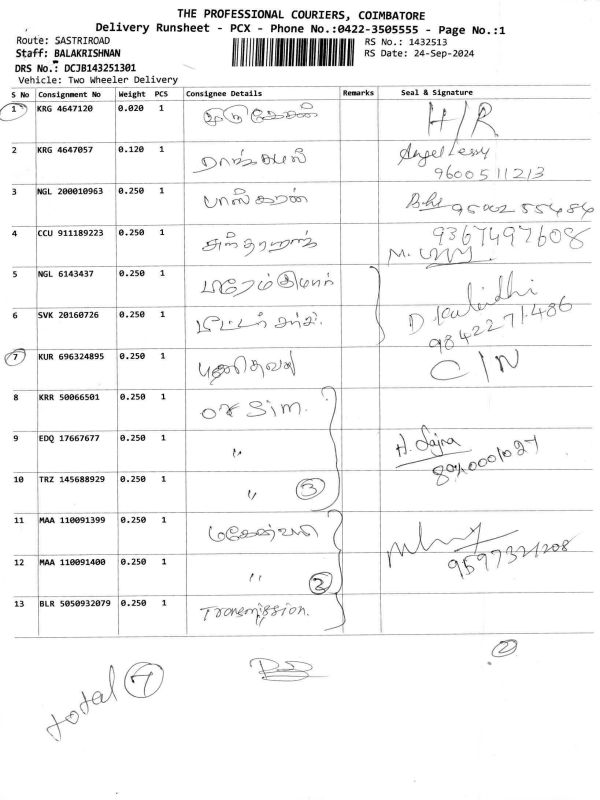 THE PROFESSIONAL COURIERS, COIMBATORE
Delivery Runsheet - PCX - Phone No.:0422-3505555 - Page No.:1
Route: SASTRIROAD
RS No.: 1432513
Staff: BALAKRISHNAN
RS Date: 24-Sep-2024
DRS No.: DCJB143251301
Vehicle: Two Wheeler Delivery
S No Consignment No Weight PCS Consignee Details Remarks Seal & Signature
1 KRG 4647120 0.020 1 முருகேசன் H/R
2 KRG 4647057 0.120 1
9600511213
3 NGL 200010963 0.250 1 பாஸ்கரன்
4 CCU 911189223 0.250 1 9367497608
M.
5 NGL 6143437 0.250 1
6 SVK 20160726 0.250 1 D
9842271486
7 KUR 696324895 0.250 1 புனிதவள் C/N
8 KRR 50066501 0.250 1 OR Sim.
9 EDQ 17667677 0.250 1 〃
10 TRZ 145688929 0.250 1 〃 3
11 MAA 110091399 0.250 1
12 MAA 110091400 0.250 1 〃 2
13 BLR 5050932079 0.250 1 Transmission.
2
total 7